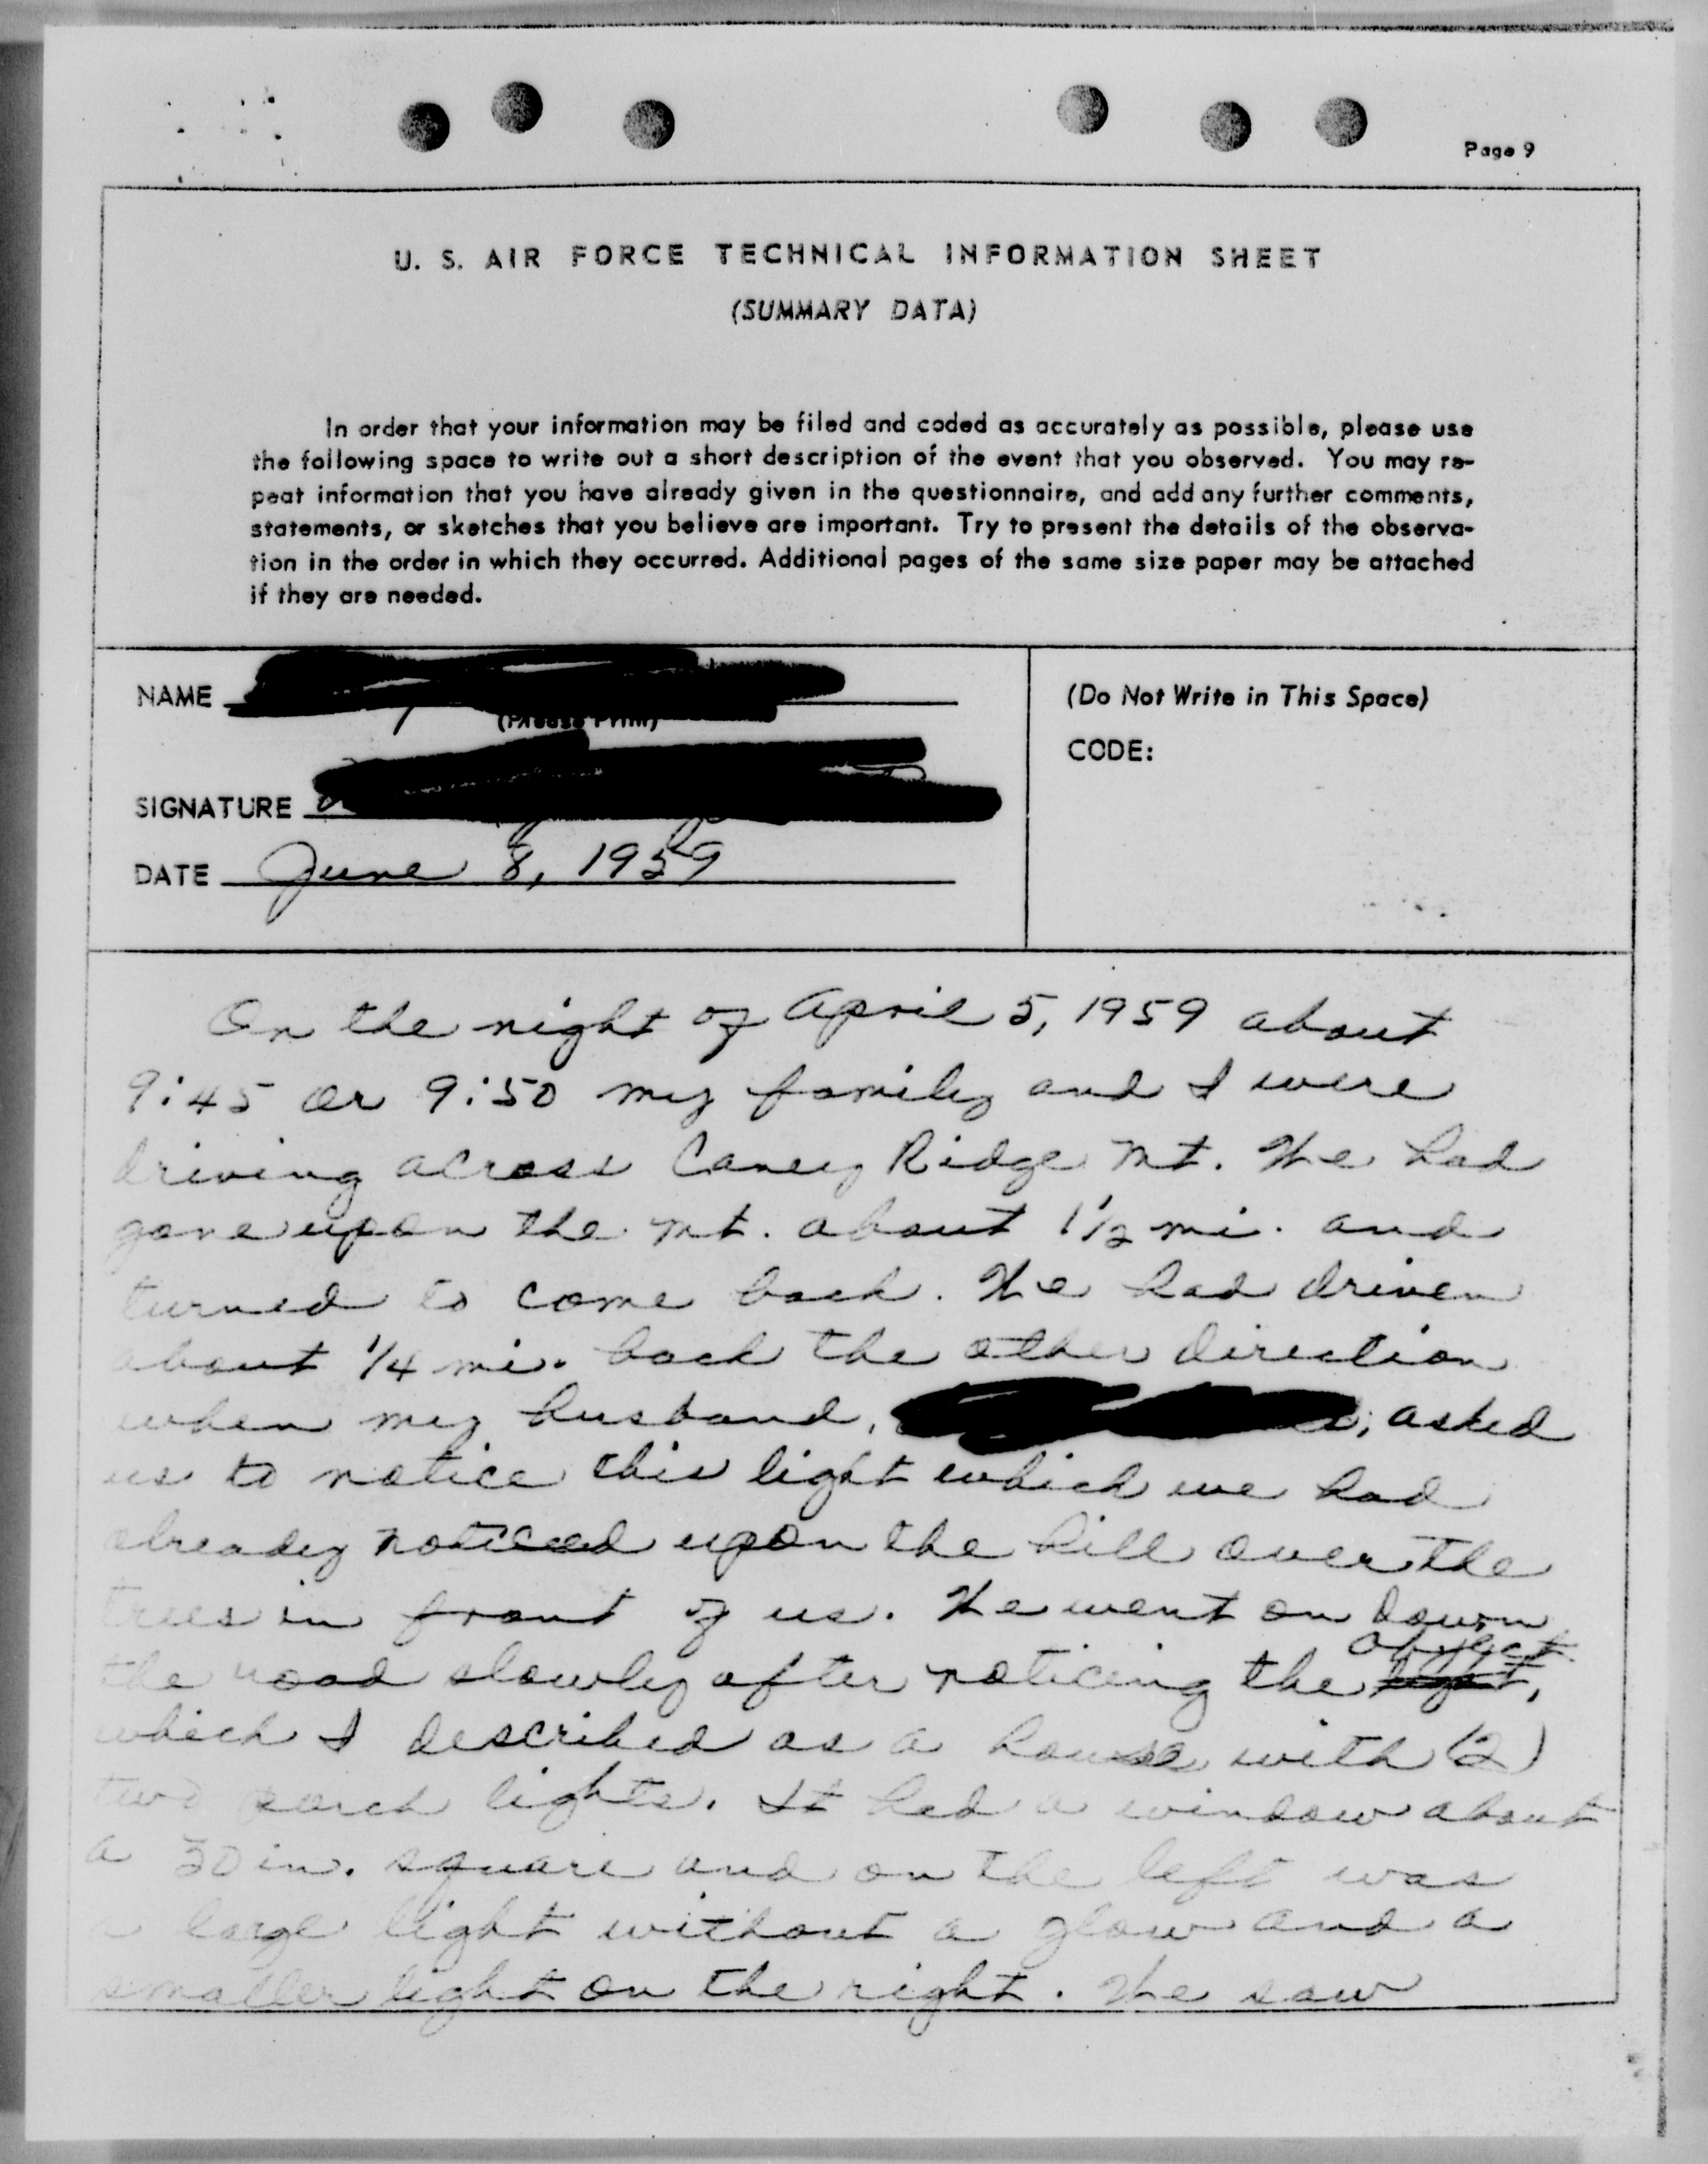 Page 9
U. S. AIR FORCE TECHNICAL INFORMATION SHEET
(SUMMARY DATA)
In order that your information may be filed and coded as accurately as possible, please use
the following space to write out a short description of the event that you observed. You may re-
peat information that you have already given in the questionnaire, and add any further comments,
statements, or sketches that you believe are important. Try to present the details of the observa-
tion in the order in which they occurred. Additional pages of the same size paper may be attached
if they are needed.
NAME
(Please Print)
SIGNATURE
DATE June 8, 1959
(Do Not Write in This Space)
CODE:
On the night of April 5, 1959 about
9:45 or 9:50 my family and I were
driving across Caney Ridge Mt. We had
gone upon the mt. about 1 1/2 mi. and
turned to come back. We had driven
about 1/4 mi. back the other direction
when my husband, asked
us to notice this light which we had
already noticed upon the hill over the
trees in front of us. We went on down
the road slowly after noticing the object,
which I described as a house with (2)
two porch lights. It had a window about
a 30 in. square and on the left was
a large light without a glow and a
smaller light on the right. We saw